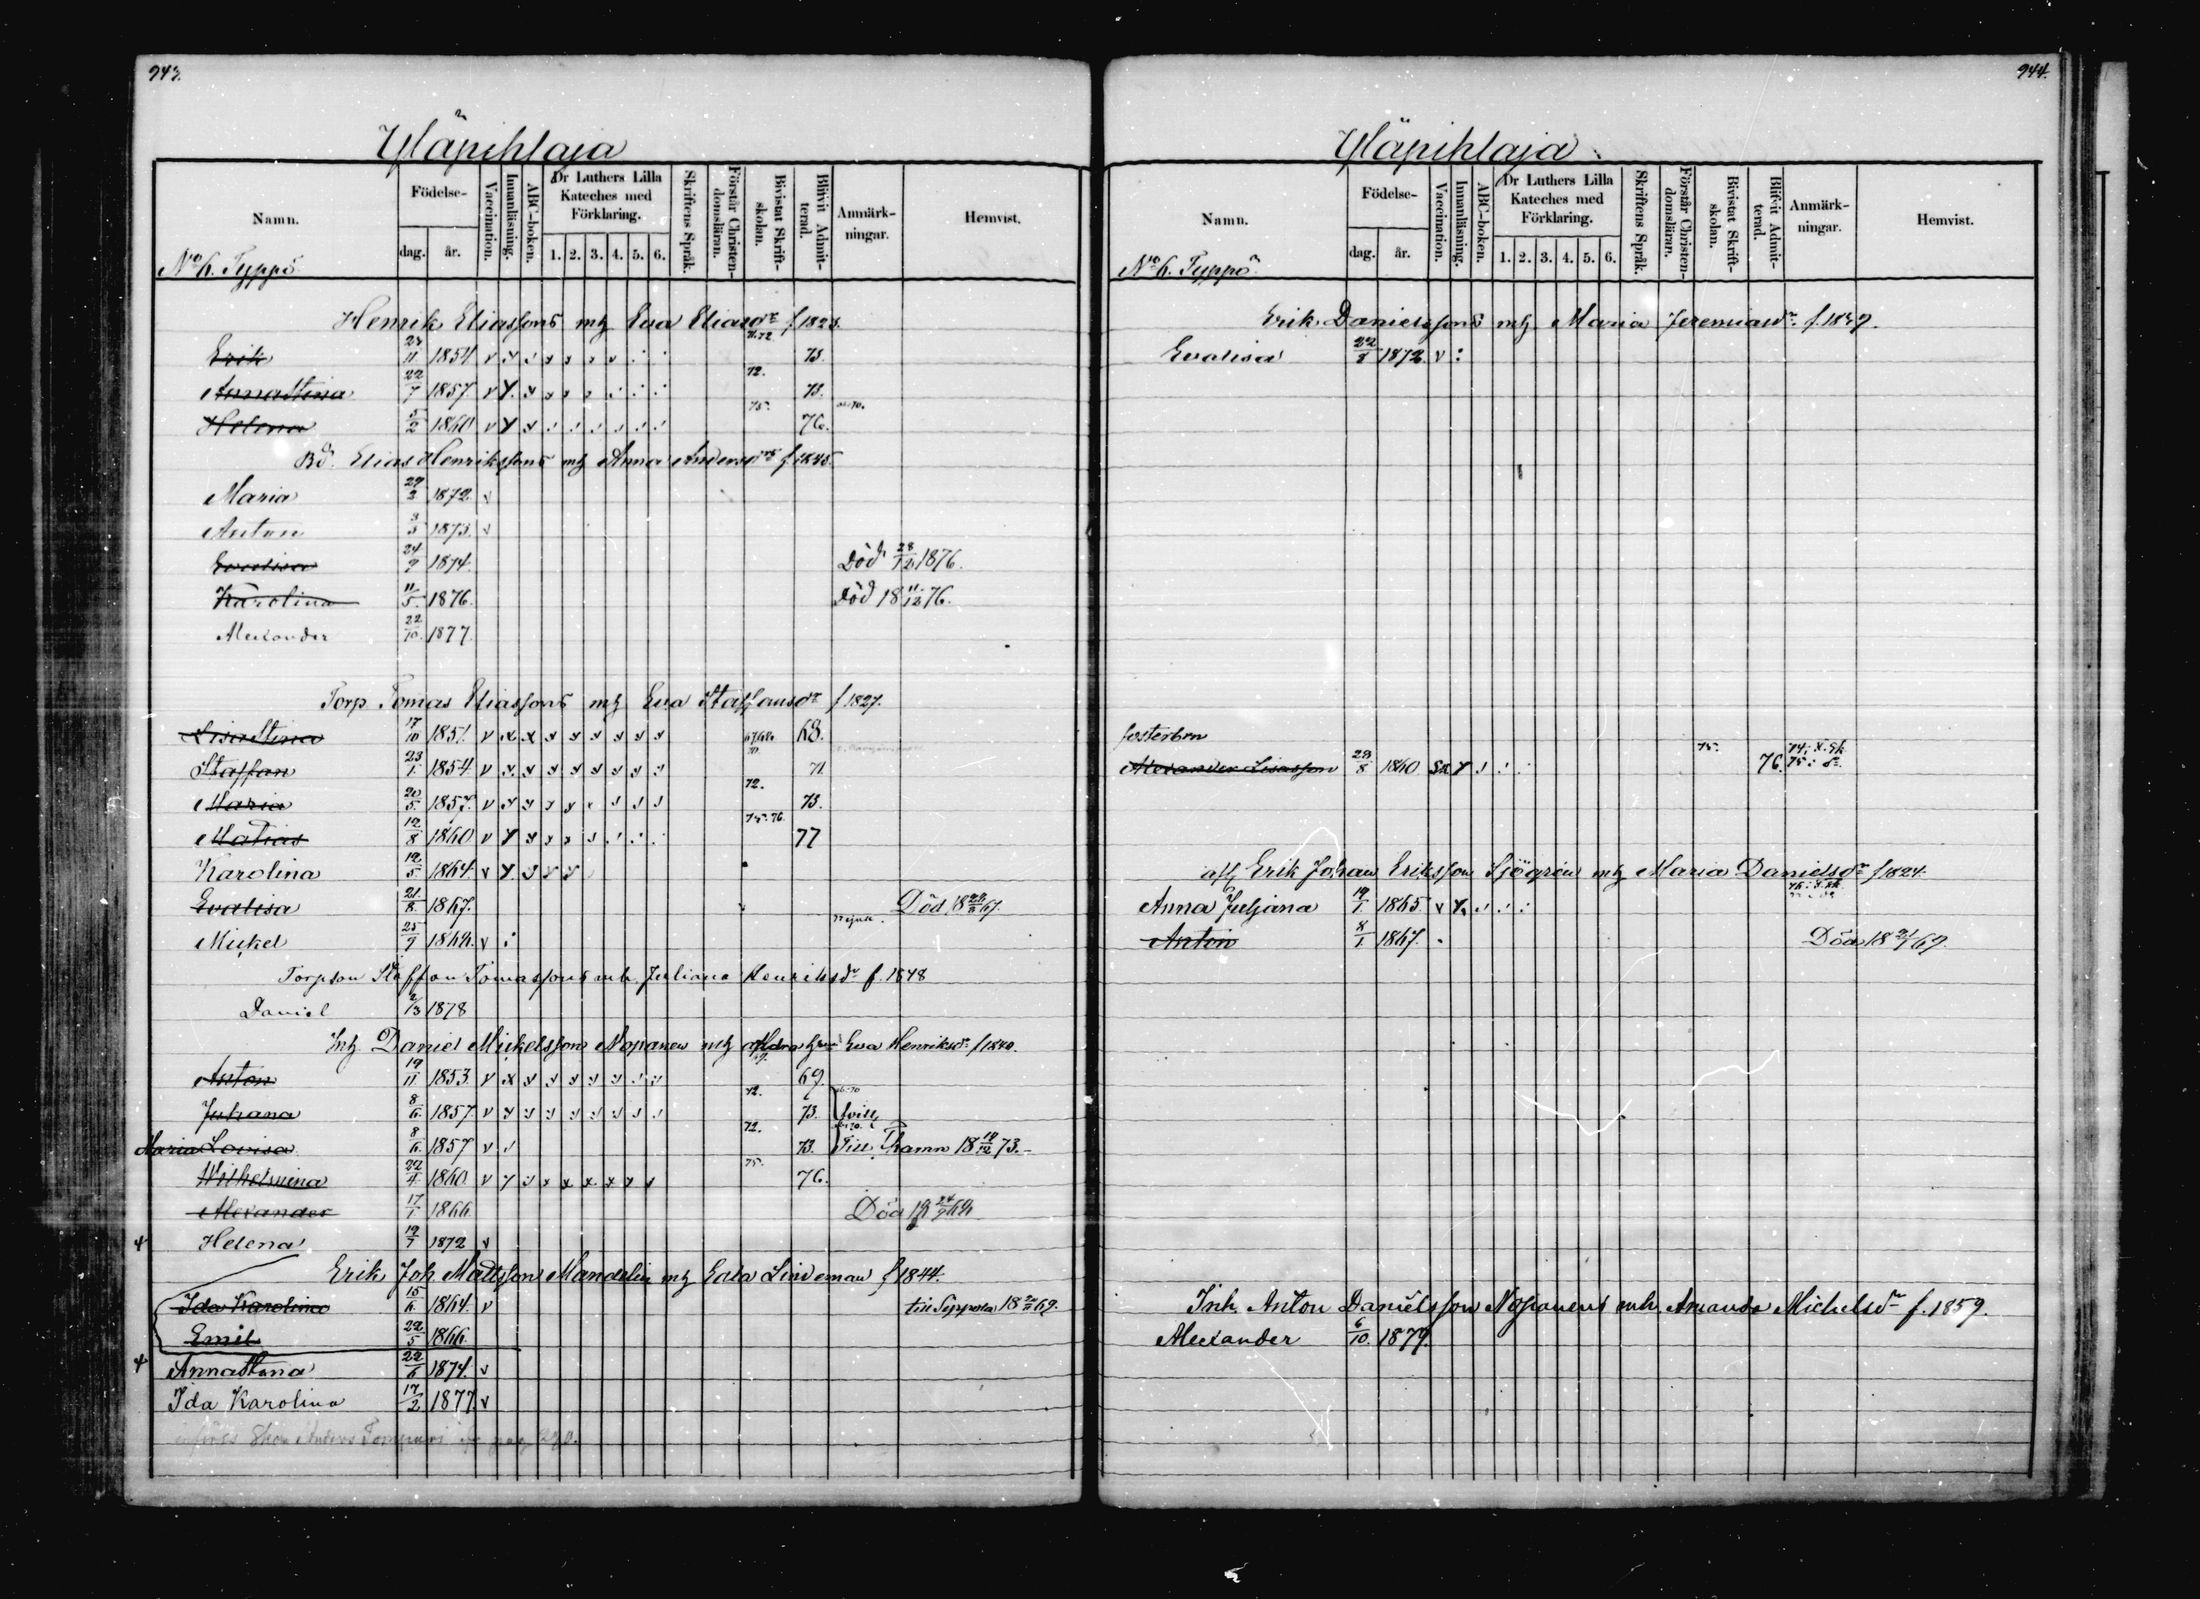 943.
Yläpihlaja
Namn.
Födelse-
dag.
år.
Vaccination.
Innanläsning.
ABC-boken.
Dr Luthers Lilla
Kateches med
Förklaring.
1. 2. 3. 4. 5. 6.
Skriftens Språk.
Förstår Christen-
domsläran.
Bivistat Skrift-
skolan.
Blifvit Admit-
terad.
Anmärk-
ningar.
Hemvist.
No 6. Typpö
Henrik Eliassons mh Eva Eliasdr f 1823.
Erik 1854 v 73.
Annastina 22/7 1857 v 72. 73.
Helena 5/2 1860 v 75. 76.
Bd. Elias Henrikssons mh Anna Andersdr f 1848.
Maria 1872 v
Anton 1873. v
Evalisa 1874. Död 28/12 1876.
Karolina 11/5 1876. död 18 11/12 76.
Alexander 22/10 1877.
Torp Tomas Eliassons mh Eva Staffansdr f 1827.
Lisa Stina 17/10 1851. v 68.
Staffan 23/1 1854 v 71
Maria 20/5 1857. v 72. 73.
Matias 12/8 1860 v 75. 76. 77
Karolina 12/5 1864. v
Evalisa 21/8 1867. Död 18 67.
Mickel 25/9 1869. v
Torpson Staffan Tomassons mh Juliana Henriksdr f. 1848
Daniel 2/3 1878
Inh Daniel Mickelsson Noponen mh Eva Henriksdr f 1840.
Anton 19/11 1853. v 69.
Juliana 8/6 1857. v 72. 73.
Maria Lovisa 8/6 1857 v 72. 73. Till Thamn 18 73.-
Wilhelmina 22/4 1860 v 75. 76.
Alexander 17/1 1866 Död
Helena 12/7 1872 v
Erik Joh. Mattsson Mandelin mh Eva Lindeman f 1844.
Ida Karolina 15/6 1864. v till Seppola 18 69.
Emil 22/5 1866.
Annastina 22/6 1874. v
Ida Karolina 17/2 1877. v
944.
Yläpihlaja
Namn.
Födelse-
dag.
år.
Vaccination.
Innanläsning.
ABC-boken.
Dr Luthers Lilla
Kateches med
Förklaring.
1. 2. 3. 4. 5. 6.
Skriftens Språk.
Förstår Christen-
domsläran.
Bivistat Skrift-
skolan.
Blifvit Admit-
terad.
Anmärk-
ningar.
Hemvist.
No 6. Typpö
Erik Danielssons mh Maria Jeremiasdr f. 1849.
Evalisa 22/8 1872. v
fosterbrn
Alexander Lisasson 28/8 1860 75. 76.
afl Erik Johan Eriksson Sjögren mh Maria Danielsdr f 1824.
Anna Juljana 19/1 1865 v
Anton 8/1 1867. Död 18 69.
Inh. Anton Danielsson Noponens mh Amanda Michelsdr f. 1859.
Alexander 6/10 1879.